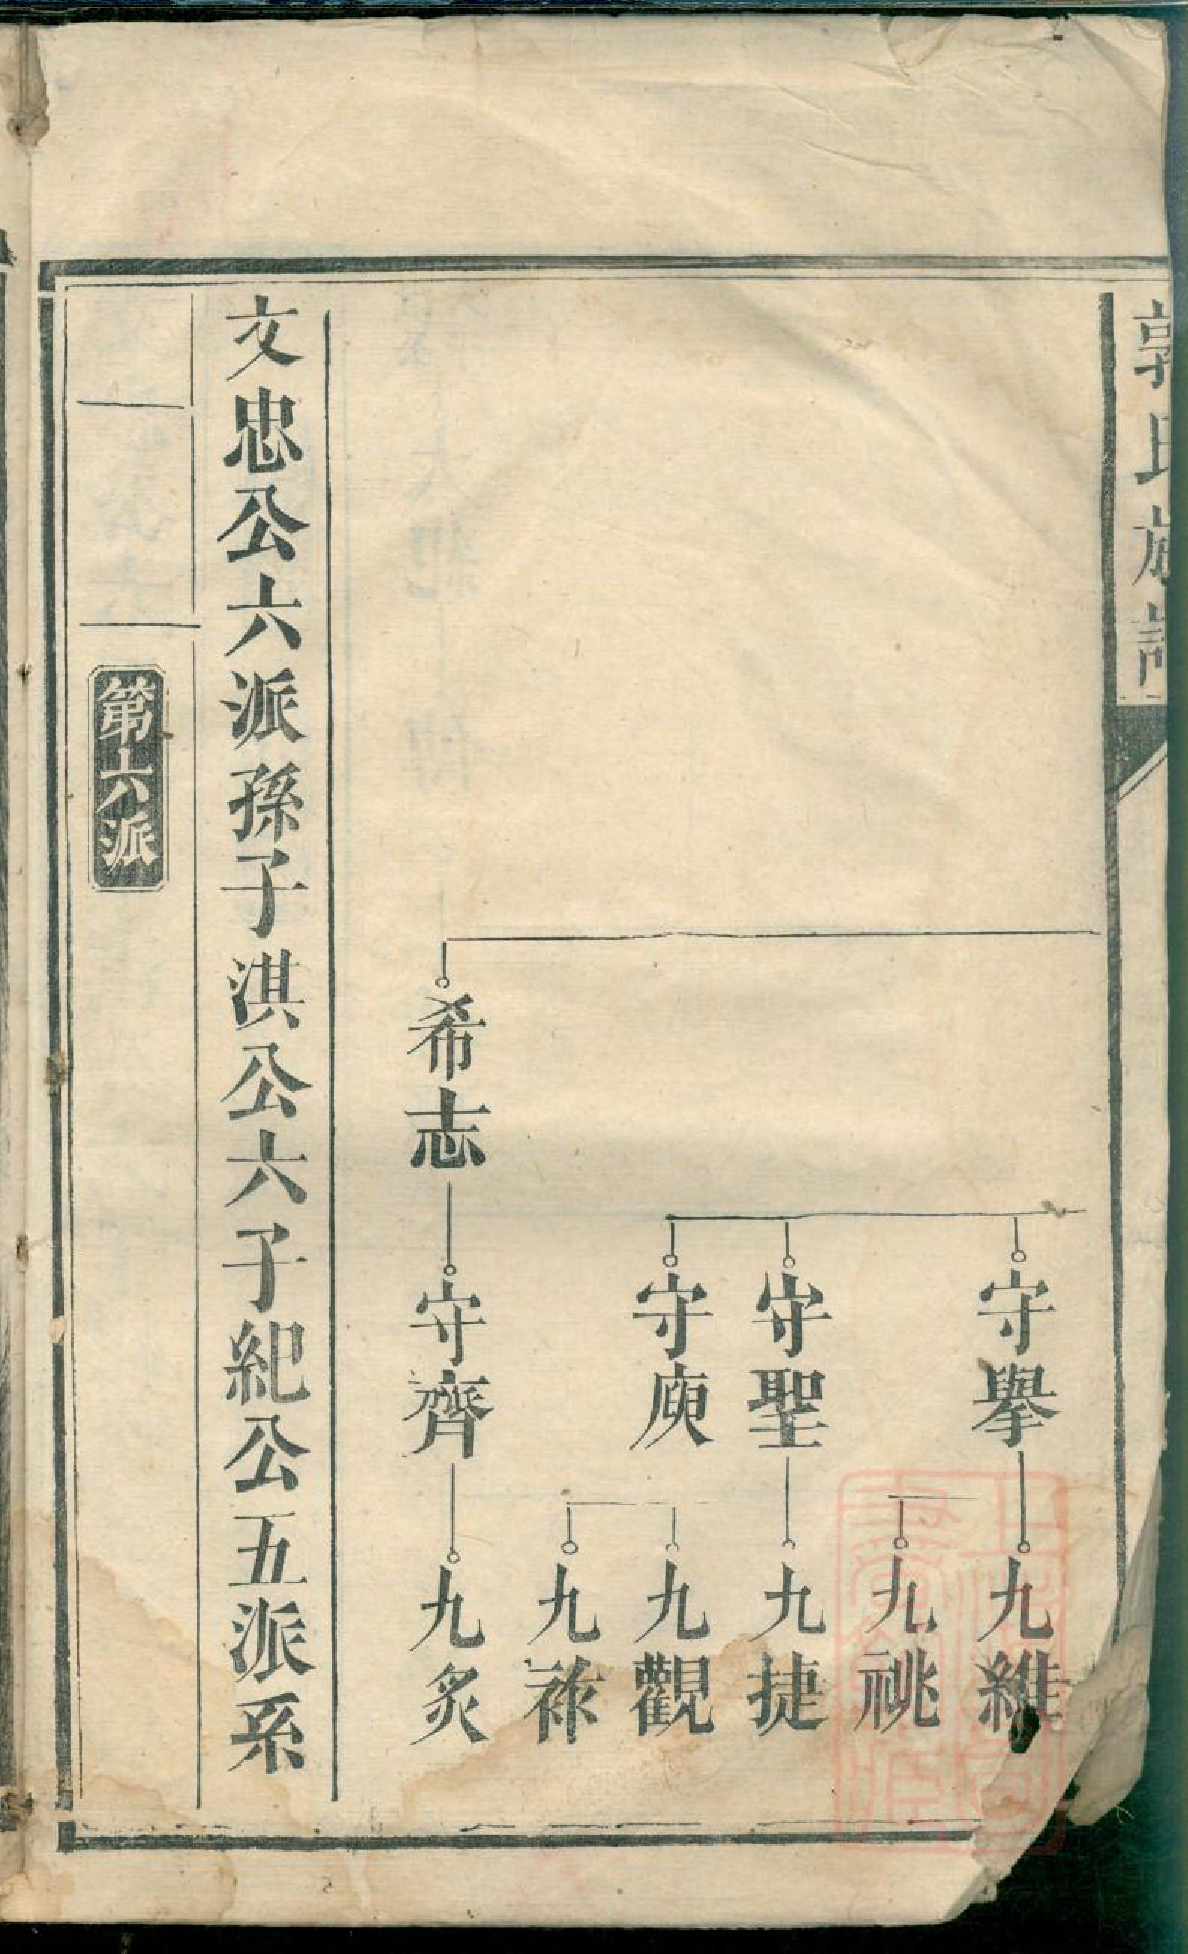 郭氏族譜
守擧
九維
九祧
守聖
九捷
守庾
九觀
九祿
希志
守齊
九炙
文忠公六派孫子淇公六子紀公五派系
第六派